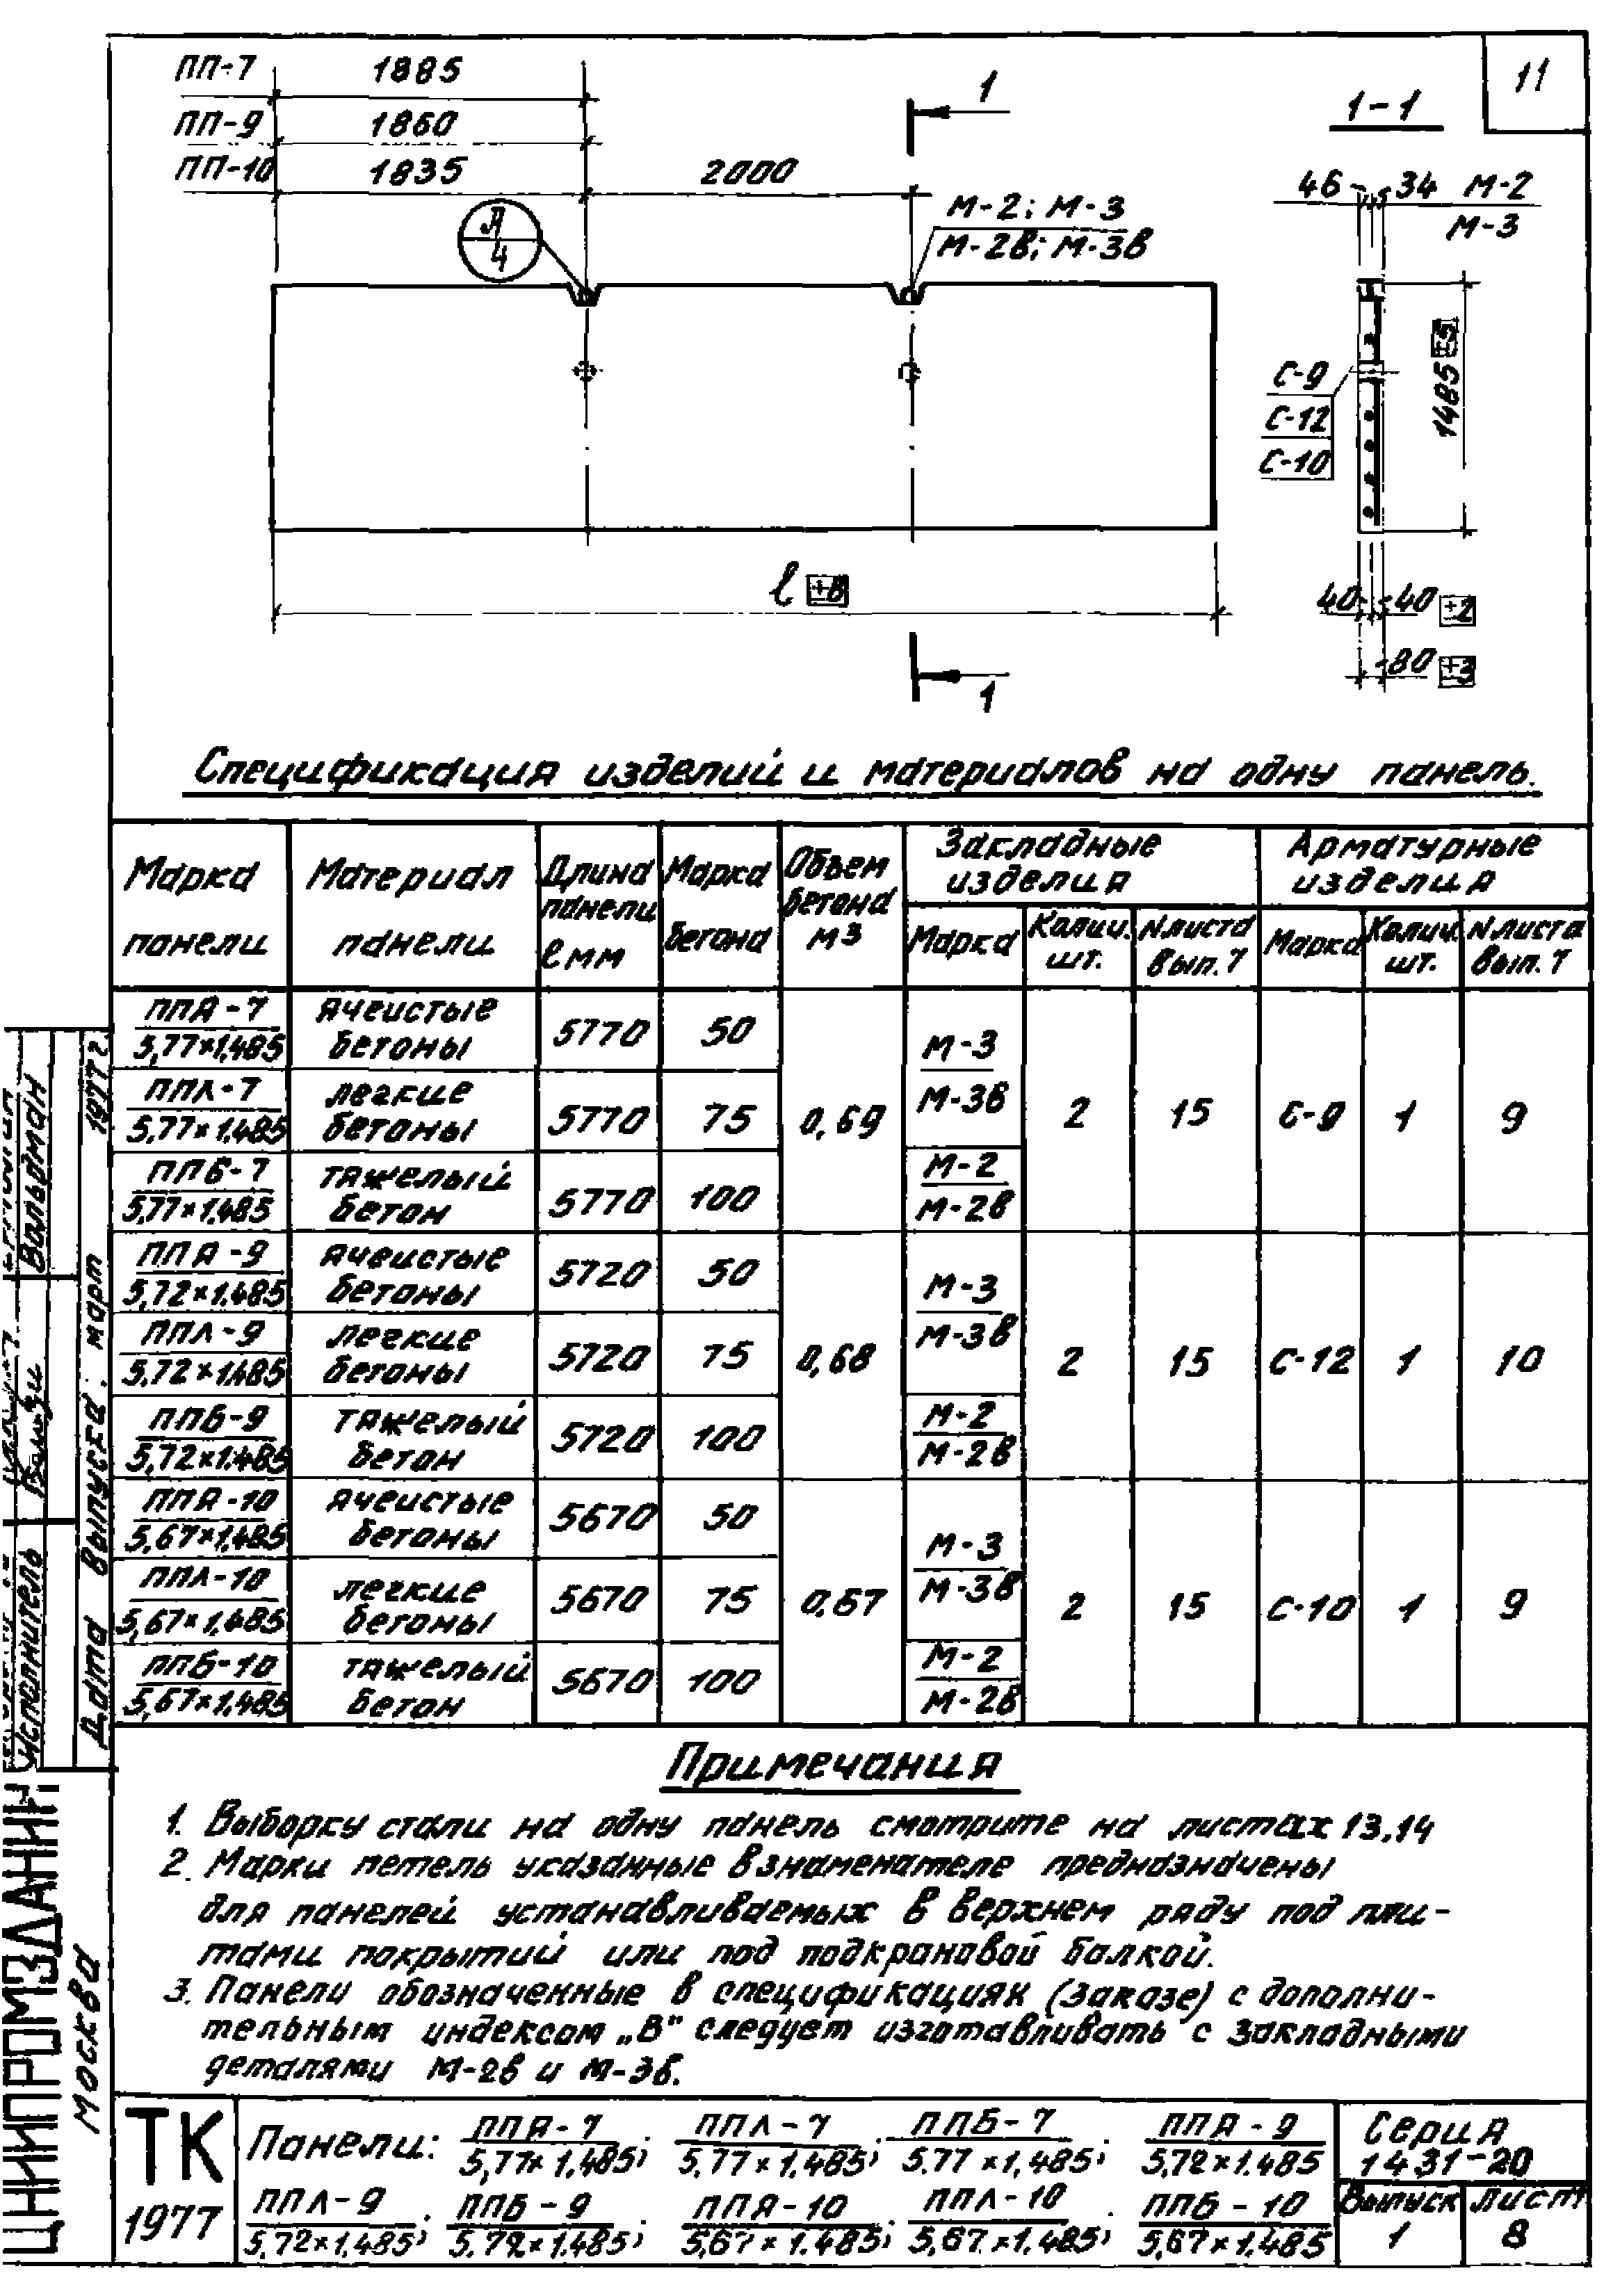 11
ПП-7 1885
ПП-9 1860
ПП-10 1835 2000
1
1-1
А
4
М-2; М-3
М-2в; М-3в
46 34 М-2
М-3
С-9
С-12
С-10
1485 ±5
ℓ ±8
40 40 ±2
80 ±3
1
Спецификация изделий и материалов на одну панель.
Марка панели | Материал панели | Длина панели ℓ мм | Марка бетона | Объем бетона м³ | Закладные изделия | Арматурные изделия
Марка | Колич. шт. | N листа вып. 7 | Марка | Колич. шт. | N листа вып. 7
ППЯ-7 5,77×1,485 ячеистые бетоны 5770 50
ППЛ-7 5,77×1.485 легкие бетоны 5770 75 0,69 М-3 М-3в 2 15 С-9 1 9
ППБ-7 5,77×1.485 тяжелый бетон 5770 100 М-2 М-2в
ППЯ-9 5,72×1.485 ячеистые бетоны 5720 50
ППЛ-9 5,72×1.485 легкие бетоны 5720 75 0,68 М-3 М-3в 2 15 С-12 1 10
ППБ-9 5,72×1.485 тяжелый бетон 5720 100 М-2 М-2в
ППЯ-10 5,67×1,485 ячеистые бетоны 5670 50
ППЛ-10 5,67×1,485 легкие бетоны 5670 75 0,67 М-3 М-3в 2 15 С-10 1 9
ППБ-10 5,67×1,485 тяжелый бетон 5670 100 М-2 М-2в
Примечания
1. Выборку стали на одну панель смотрите на листах 13,14
2. Марки петель указанные в знаменателе предназначены
для панелей устанавливаемых в верхнем ряду под пли-
тами покрытий или под подкрановой балкой.
3. Панели обозначенные в спецификациях (заказе) с дополни-
тельным индексом „В" следует изготавливать с закладными
деталями М-2в и М-3в.
ТК
1977
Панели: ППЯ-7 5,77×1.485; ППЛ-7 5,77×1.485; ППБ-7 5.77×1,485; ППЯ-9 5,72×1.485
ППЛ-9 5,72×1,485; ППБ-9 5.72×1.485; ППЯ-10 5,67×1.485; ППЛ-10 5,67×1,485; ППБ-10 5,67×1.485
Серия
1431-20
Выпуск Лист
1 8
Вальдман
Исполнитель
Дата выпуска: март 1977 г.
ЦНИИПРОМЗДАНИЙ
Москва